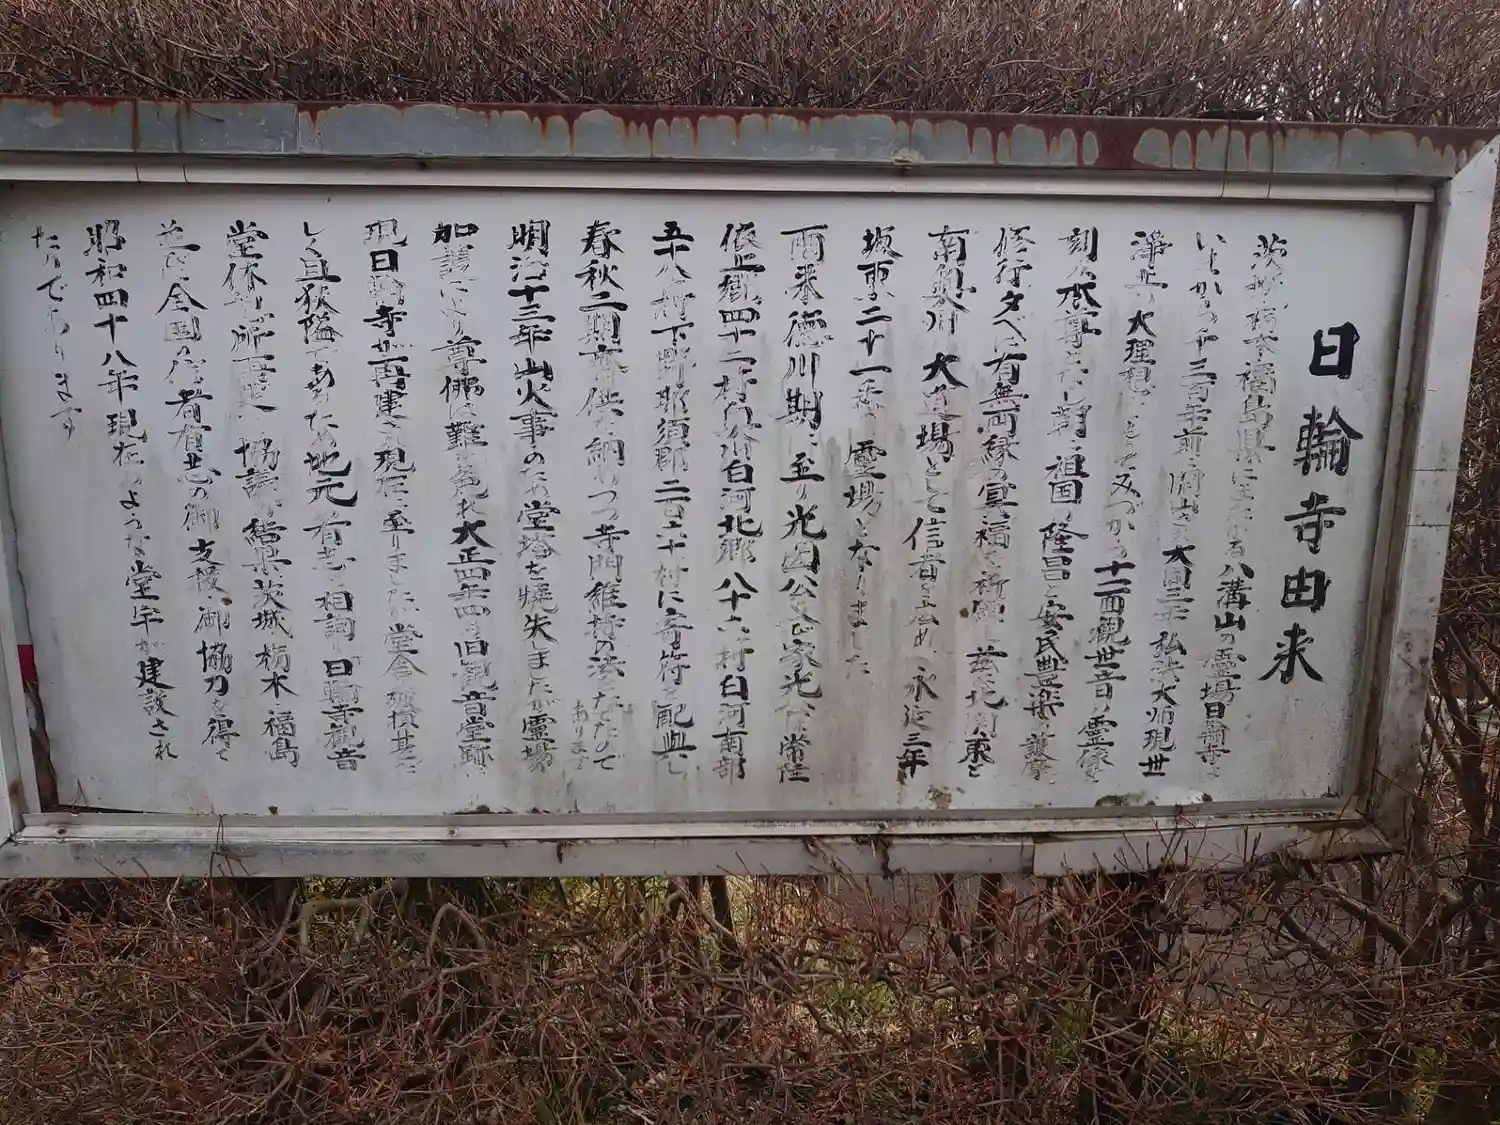 日輪寺由来
茨城栃木福島県にまたがる八溝山の霊場日輪寺は
いまから千三百年前に開山され大同二年弘法大師現世
浄土の大理想をもってみづから十一面観世音の霊像を
刻み本尊となし朝に祖国の隆昌と安民豊楽の護摩
修行夕べに有無両縁の冥福を祈願し茲に北関東と
南奥州の大道場として信者を広め 永延三年
坂東二十一番の霊場となりました
爾来徳川期に至り光圀公 家光 常陸
依上郷四十二ヶ村 白河北郷八十六村白河南郷
五十八ヶ村下野那須郡二百六十村に寄符を配與し
春秋二期斎供を納めつつ寺門維持の法をたてたので
あります
明治十三年山火事のため堂塔を焼失しましたが霊場
加護により尊像は難を免れ大正四年四月旧観音堂跡に
現日輪寺が再建され現在に至りましたが堂舎破損甚だ
しく且狭隘であるため地元の有志相詢り日輪寺観音
堂 協議の結果茨城栃木福島
並びに全国の信者有志の御支援御協力を得て
昭和四十八年現在のような堂宇が建設され
たりであります